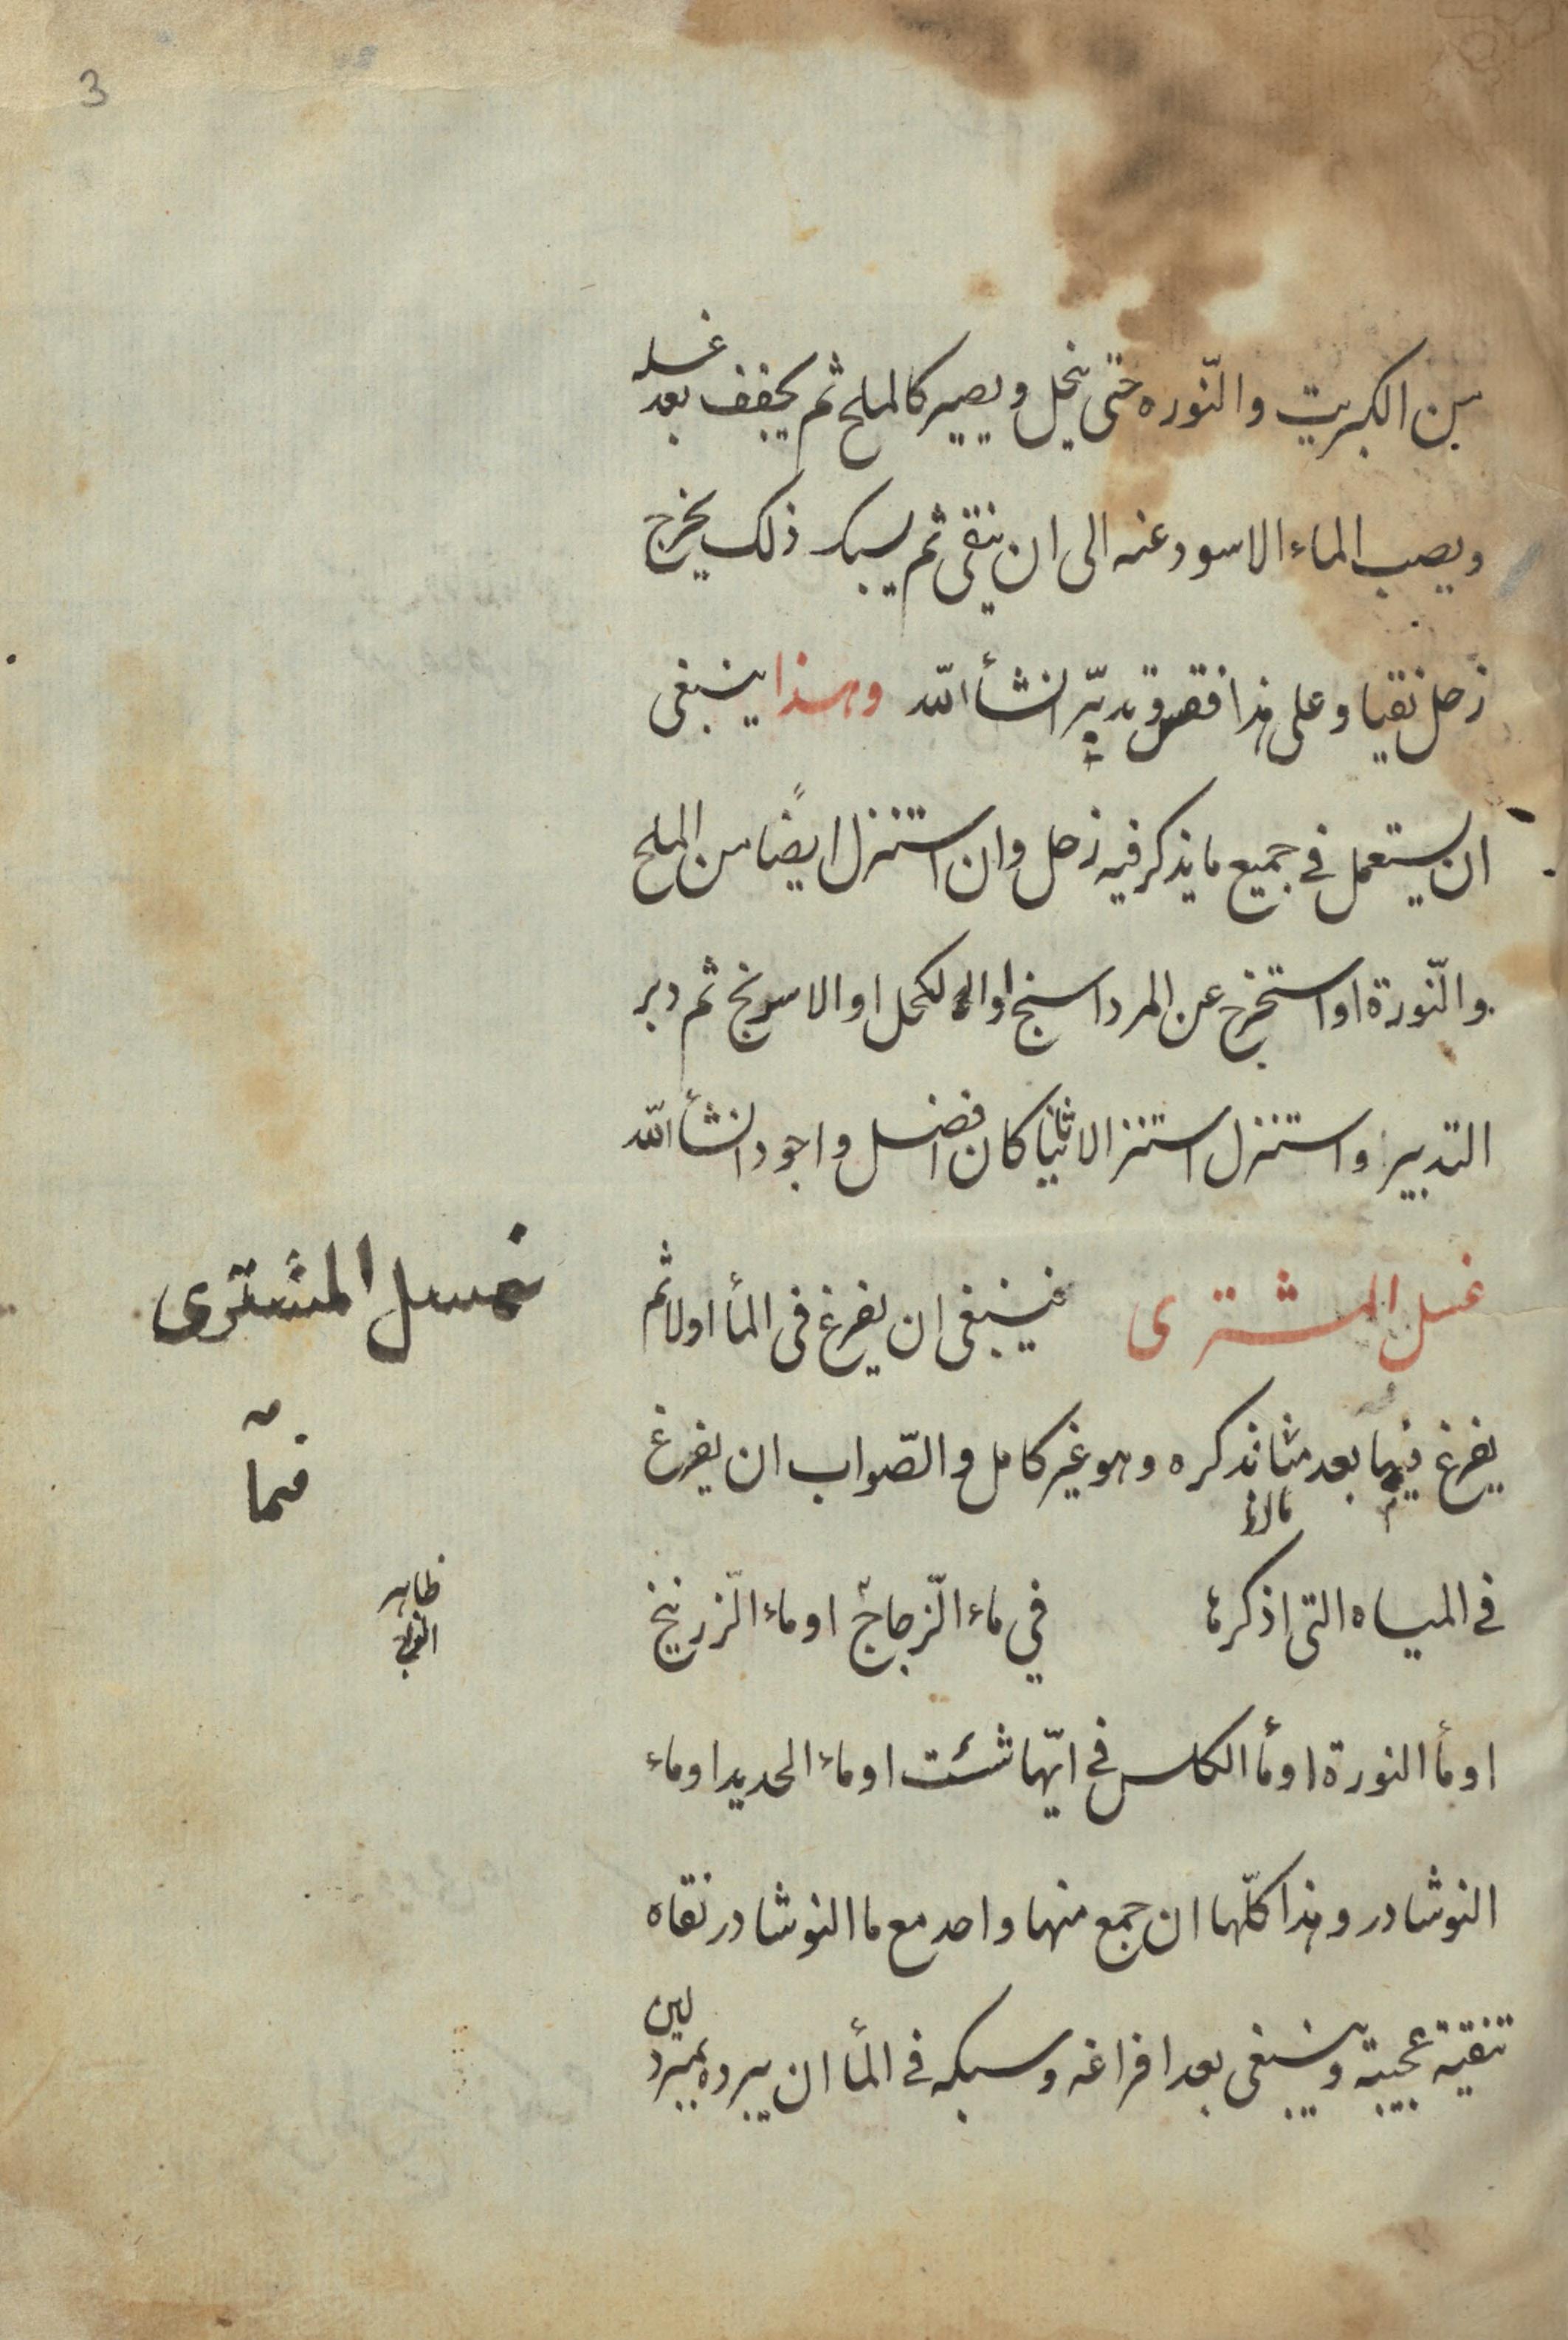 3
من الكبريت والنّوره حتى ينحل ويصير كالملح ثم يجفف بعد غسله
ويصب الماء الاسود عنه الى ان ينقى ثم يسبك ذلك يخرج
زحل نقيا وعلى هذا فقس وتدبّر انشأ الله وهذا ينبغى
ان يستعمل في جميع ما يذكر فيه زحل وان استنزل ايضًا من الملح
والنّورة او استخرج عن المرداسنج او الكحل او الاسرنج ثم دبر
التدبير واستنزل استنزالا ثانيا كان افضل واجود انشأ الله
غسل المشترى فينبغى ان يفرغ فى المأ اولا ثم
يفرغ فيما بعد نذكره وهو غير كامل والصّواب ان يفرغ
في المياه التى اذكرها في ماء الزّجاج او ماء الزّرنيخ
او مأ النورة او مأ الكلس في ايّها شئت او ماء الحديد او ماء
النوشادر وهذا كلّها ان جمع منها واحد مع ما النوشادر نقاه
تنقية عجيبة وينبغى بعد افراغه وسبكه في المأ ان يبرده بمبرد لين
غسل المشترى
فيما
ظاهر